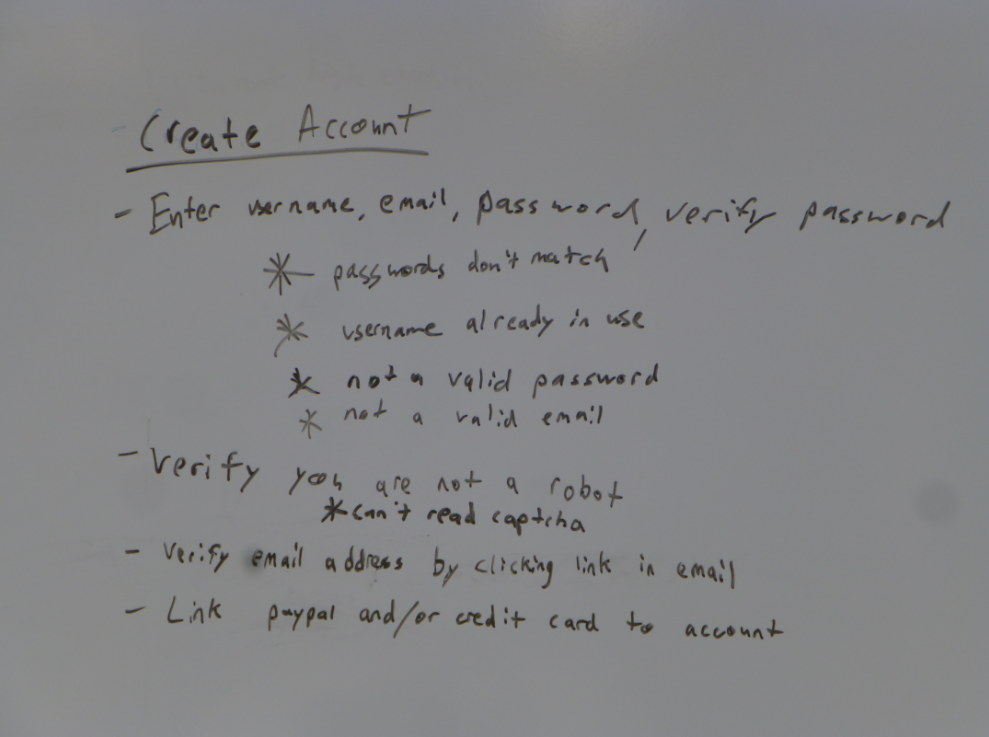 Create Account
- Enter username, email, password, verify password
* passwords don't match
* username already in use
* not a valid password
* not a valid email
- Verify you are not a robot
* can't read captcha
- Verify email address by clicking link in email
- Link paypal and/or credit card to account